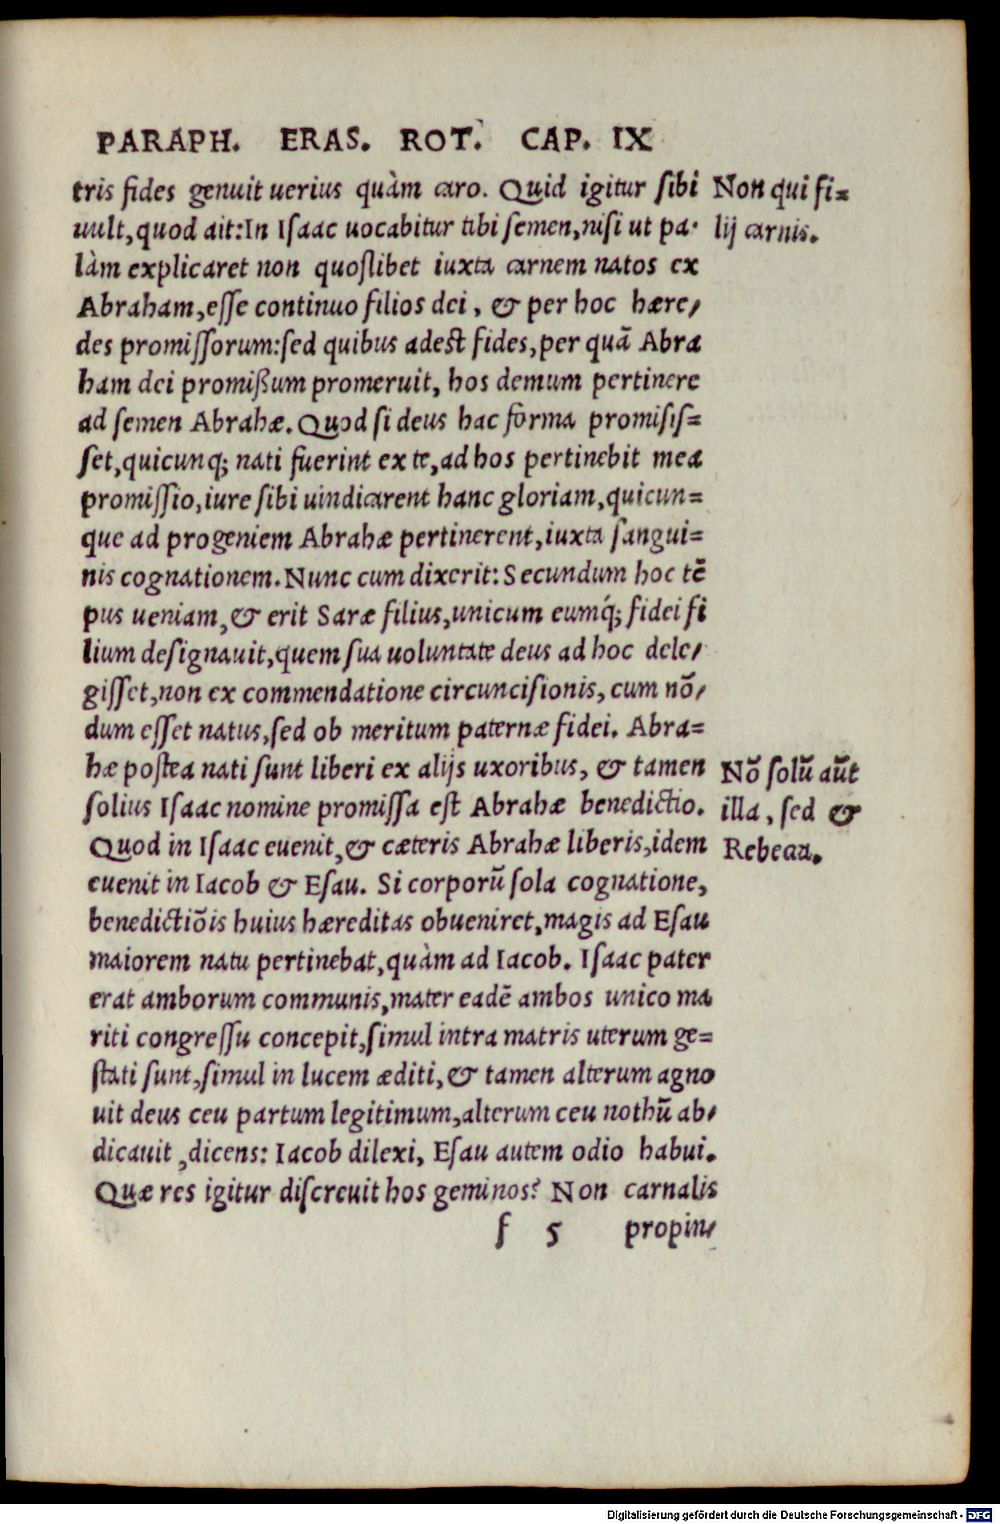 PARAPH. ERAS. ROT. CAP. IX
tris fides genuit uerius quàm caro. Quid igitur sibi
uult, quod ait: In Isaac uocabitur tibi semen, nisi ut pa-
làm explicaret non quoslibet iuxta carnem natos ex
Abraham, esse continuo filios dei, & per hoc hære/
des promissorum: sed quibus adest fides, per quã Abra
ham dei promißum promeruit, hos demum pertinere
ad semen Abrahæ. Quod si deus hac forma promisis=
set, quicunq; nati fuerint ex te, ad hos pertinebit mea
promissio, iure sibi uindicarent hanc gloriam, quicun=
que ad progeniem Abrahæ pertinerent, iuxta sangui=
nis cognationem. Nunc cum dixerit: Secundum hoc tẽ
pus ueniam, & erit Saræ filius, unicum eumq́; fidei fi
lium designauit, quem sua uoluntate deus ad hoc dele/
gisset, non ex commendatione circuncisionis, cum nõ/
dum esset natus, sed ob meritum paternæ fidei. Abra=
hæ postea nati sunt liberi ex alijs uxoribus, & tamen
solius Isaac nomine promissa est Abrahæ benedictio.
Quod in Isaac euenit, & cæteris Abrahæ liberis, idem
euenit in Iacob & Esau. Si corporũ sola cognatione,
benedictiõis huius hæreditas obueniret, magis ad Esau
maiorem natu pertinebat, quàm ad Iacob. Isaac pater
erat amborum communis, mater eadẽ ambos unico ma
riti congressu concepit, simul intra matris uterum ge=
stati sunt, simul in lucem æditi, & tamen alterum agno
uit deus ceu partum legitimum, alterum ceu nothũ ab/
dicauit, dicens: Iacob dilexi, Esau autem odio habui.
Quæ res igitur discreuit hos geminos? Non carnalis
f 5 propin/
Non qui fi=
lij carnis.
Nõ solũ aũt
illa, sed &
Rebecca.
Digitalisierung gefördert durch die Deutsche Forschungsgemeinschaft - DFG